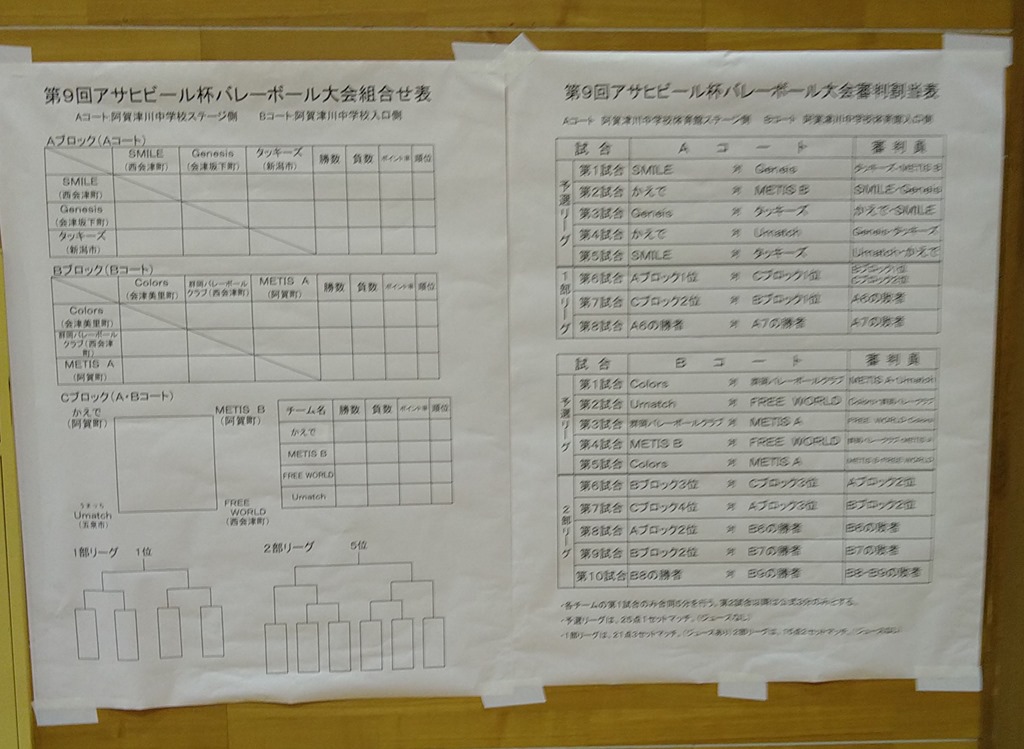 第9回アサヒビール杯バレーボール大会組合せ表
Aコート:阿賀津川中学校ステージ側 Bコート:阿賀津川中学校入口側
Aブロック(Aコート)
SMILE (西会津町) Genesis (会津坂下町) タッキーズ (新潟市) 勝数 負数 ポイント率 順位
SMILE (西会津町)
Genesis (会津坂下町)
タッキーズ (新潟市)
Bブロック(Bコート)
Colors (会津美里町) 群岡バレーボールクラブ(西会津町) METIS A (阿賀町) 勝数 負数 ポイント率 順位
Colors (会津美里町)
群岡バレーボールクラブ(西会津町)
METIS A (阿賀町)
Cブロック(A・Bコート)
かえで (阿賀町) METIS B (阿賀町)
うまっち Umatch (五泉市) FREE WORLD (西会津町)
チーム名 勝数 負数 ポイント率 順位
かえで
METIS B
FREE WORLD
Umatch
1部リーグ 1位
2部リーグ 5位
第9回アサヒビール杯バレーボール大会審判割当表
Aコート 阿賀津川中学校体育館ステージ側 Bコート 阿賀津川中学校体育館入口側
試合 Aコート 審判員
予選リーグ
第1試合 SMILE 対 Genesis タッキーズ・METIS B
第2試合 かえで 対 METIS B SMILE・Genesis
第3試合 Geneis 対 タッキーズ かえで・SMILE
第4試合 かえで 対 Umatch Genesis・タッキーズ
第5試合 SMILE 対 タッキーズ Umatch・かえで
1部リーグ
第6試合 Aブロック1位 対 Cブロック1位 Bブロック1位 Cブロック2位
第7試合 Cブロック2位 対 Bブロック1位 A6の敗者
第8試合 A6の勝者 対 A7の勝者 A7の敗者
試合 Bコート 審判員
予選リーグ
第1試合 Colors 対 群岡バレーボールクラブ METIS A・Umatch
第2試合 Umatch 対 FREE WORLD Colors・群岡バレークラブ
第3試合 群岡バレーボールクラブ 対 METIS A FREE WORLD・Colors
第4試合 METIS B 対 FREE WORLD 群岡バレークラブ・METIS A
第5試合 Colors 対 METIS A METIS B・FREE WORLD
2部リーグ
第6試合 Bブロック3位 対 Cブロック3位 Aブロック2位
第7試合 Cブロック4位 対 Aブロック3位 Bブロック2位
第8試合 Aブロック2位 対 B6の勝者 B6の敗者
第9試合 Bブロック2位 対 B7の勝者 B7の敗者
第10試合 B8の勝者 対 B9の勝者 B8・B9の敗者
・各チームの第1試合のみ合同5分を行う。第2試合以降は公式3分のみとする。
・予選リーグは、25点1セットマッチ。(ジュースなし)
・1部リーグは、21点3セットマッチ。(ジュースあり)2部リーグは、15点2セットマッチ。(ジュースなし)